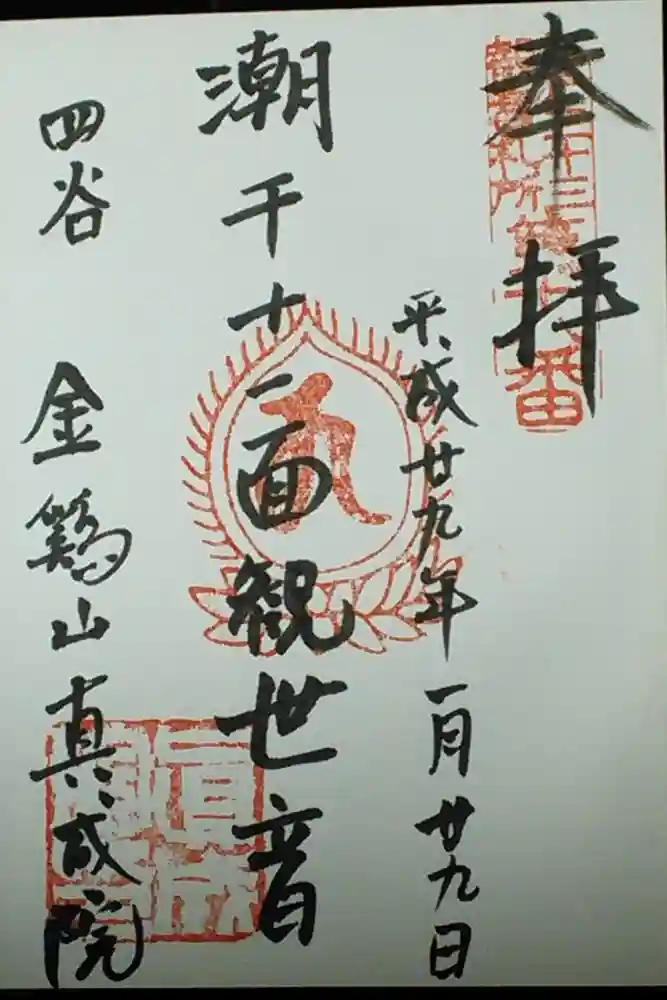 奉拝
平成廿九年一月廿九日
潮干十一面観世音
四谷 金鶏山真成院